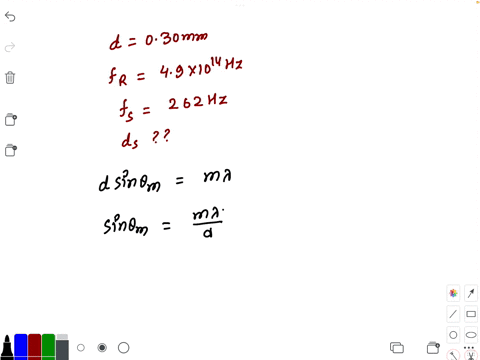 d = 0.30mm
fR = 4.9×10^14 Hz
fs = 262 Hz
ds ??
d sinθm = mλ
sinθm = mλ/d